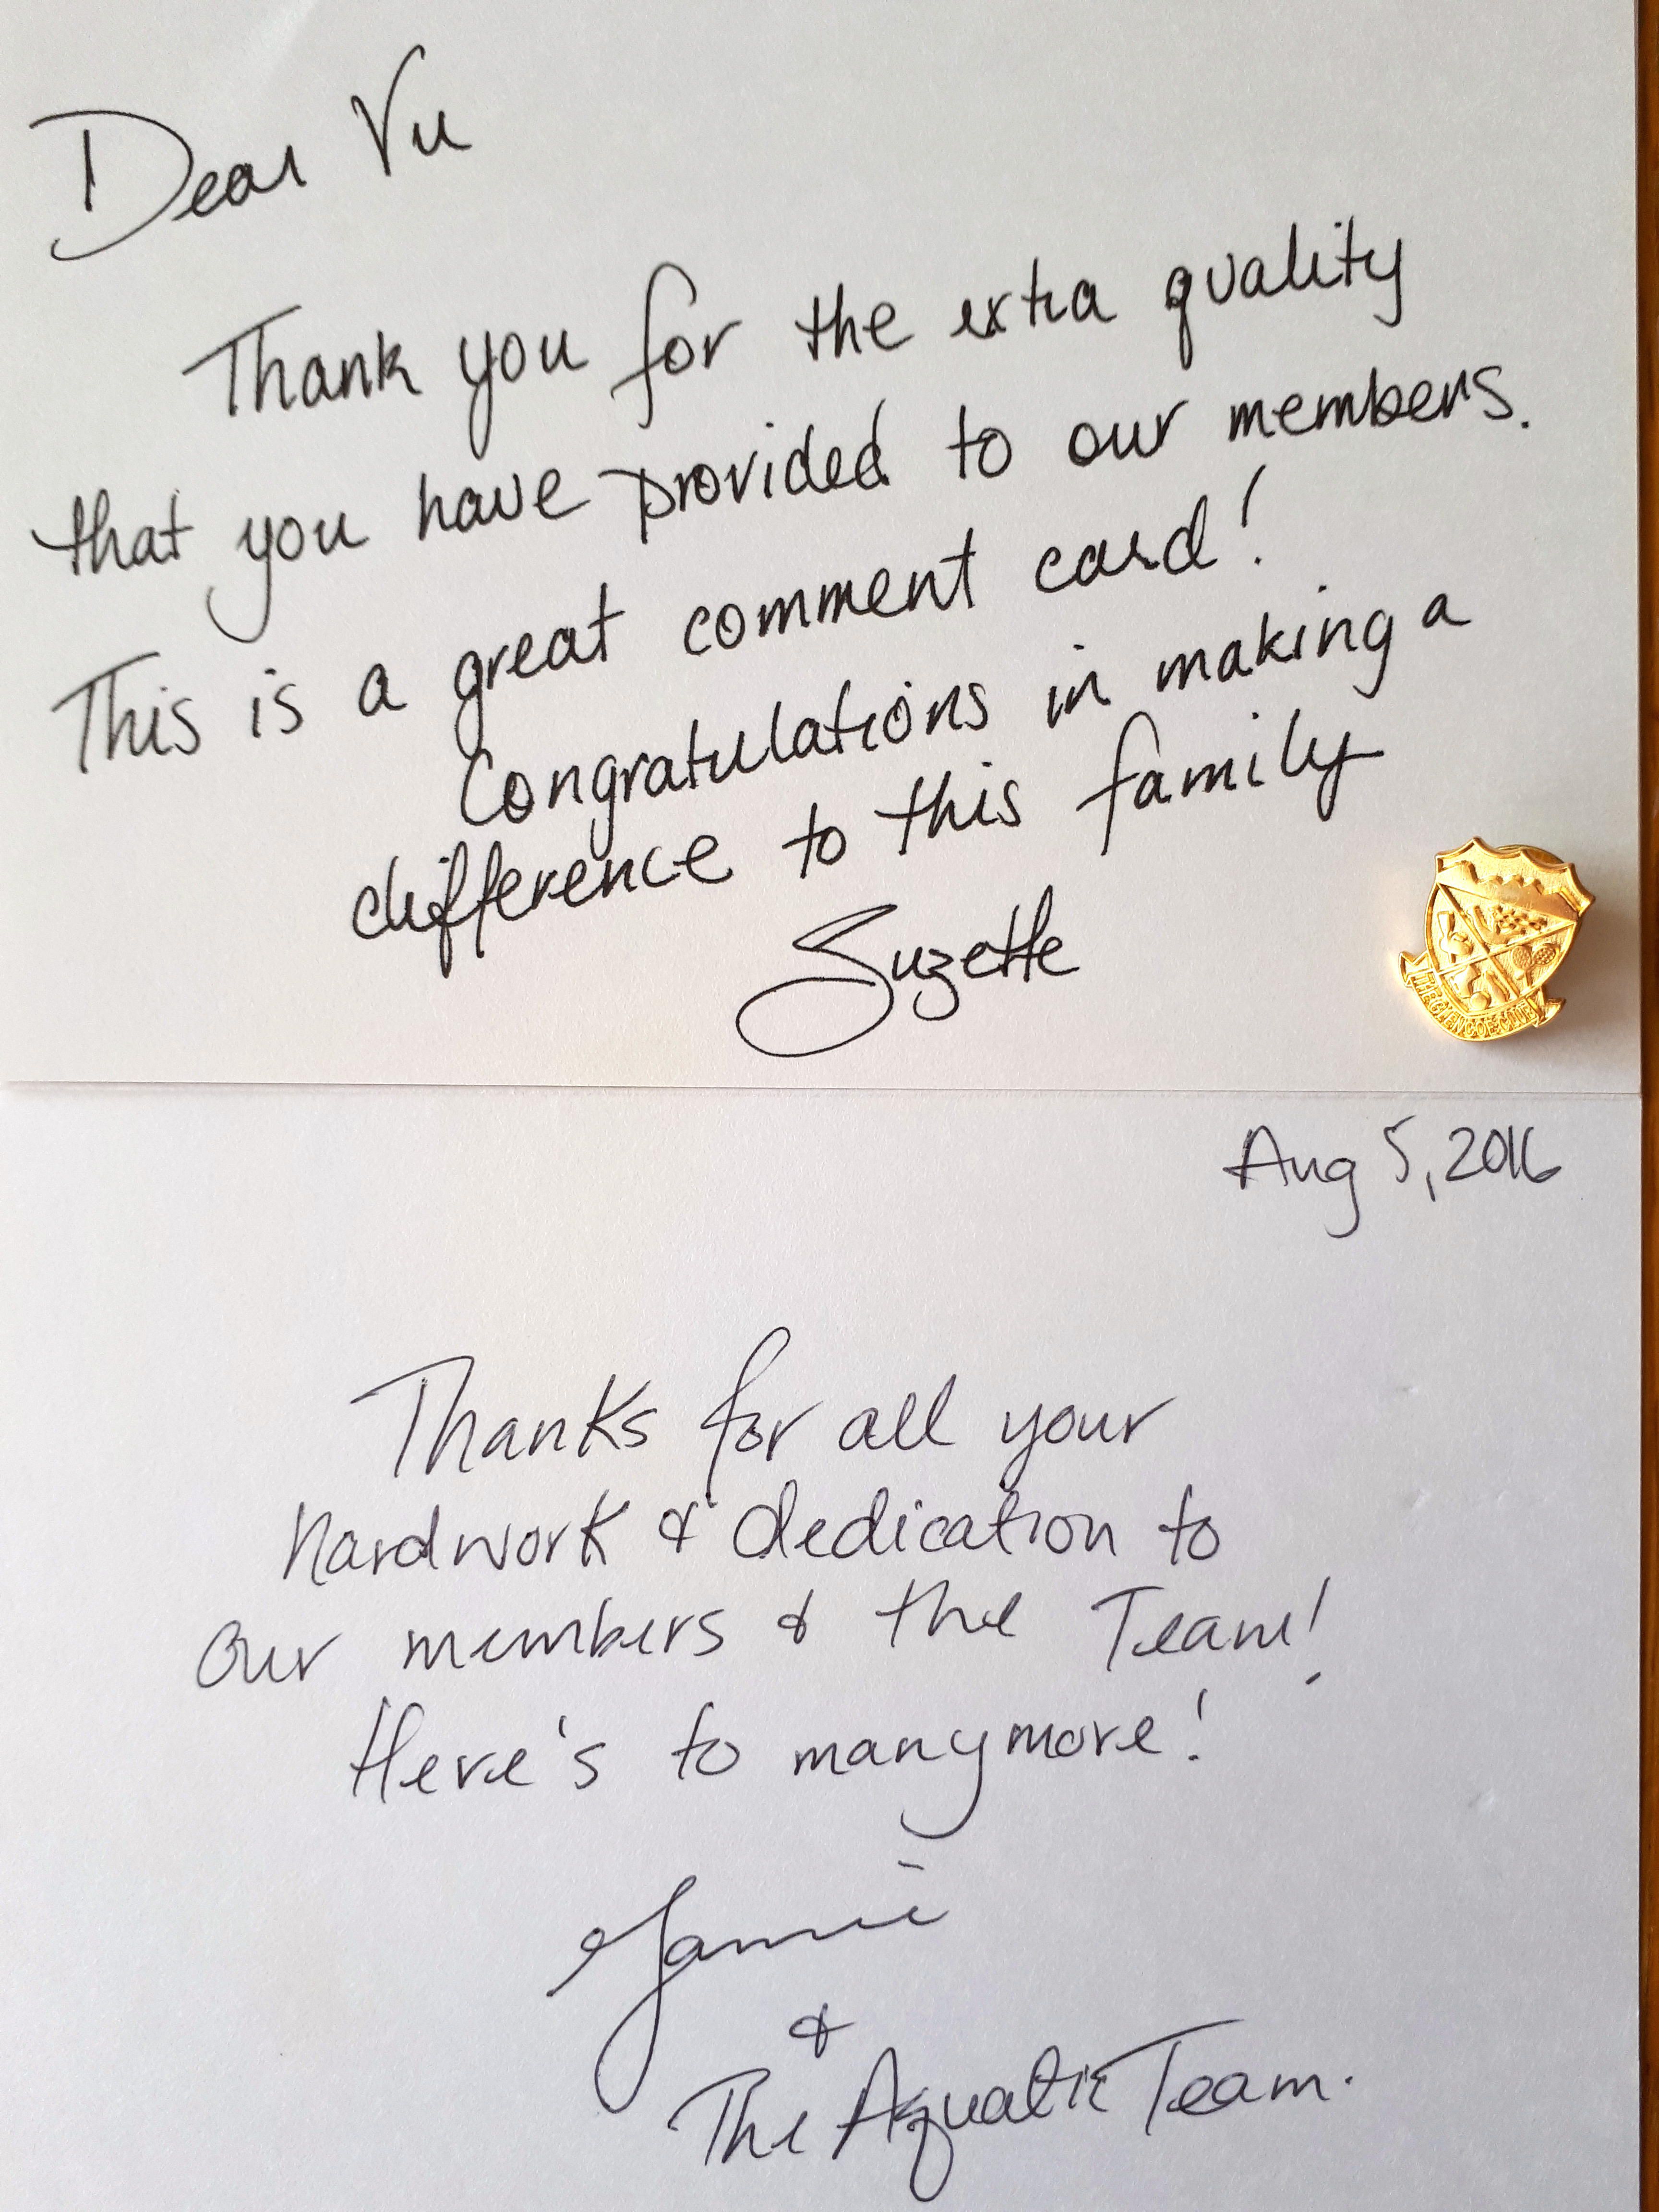 Dear Vu
Thank you for the extra quality
that you have provided to our members.
This is a great comment card!
Congratulations in making a
difference to this family
Suzette
THE GLENCOE CLUB
Aug 5, 2016
Thanks for all your
hardwork & dedication to
Our members & the Team!
Here's to many more!
Jamie
&
The Aquatic Team.